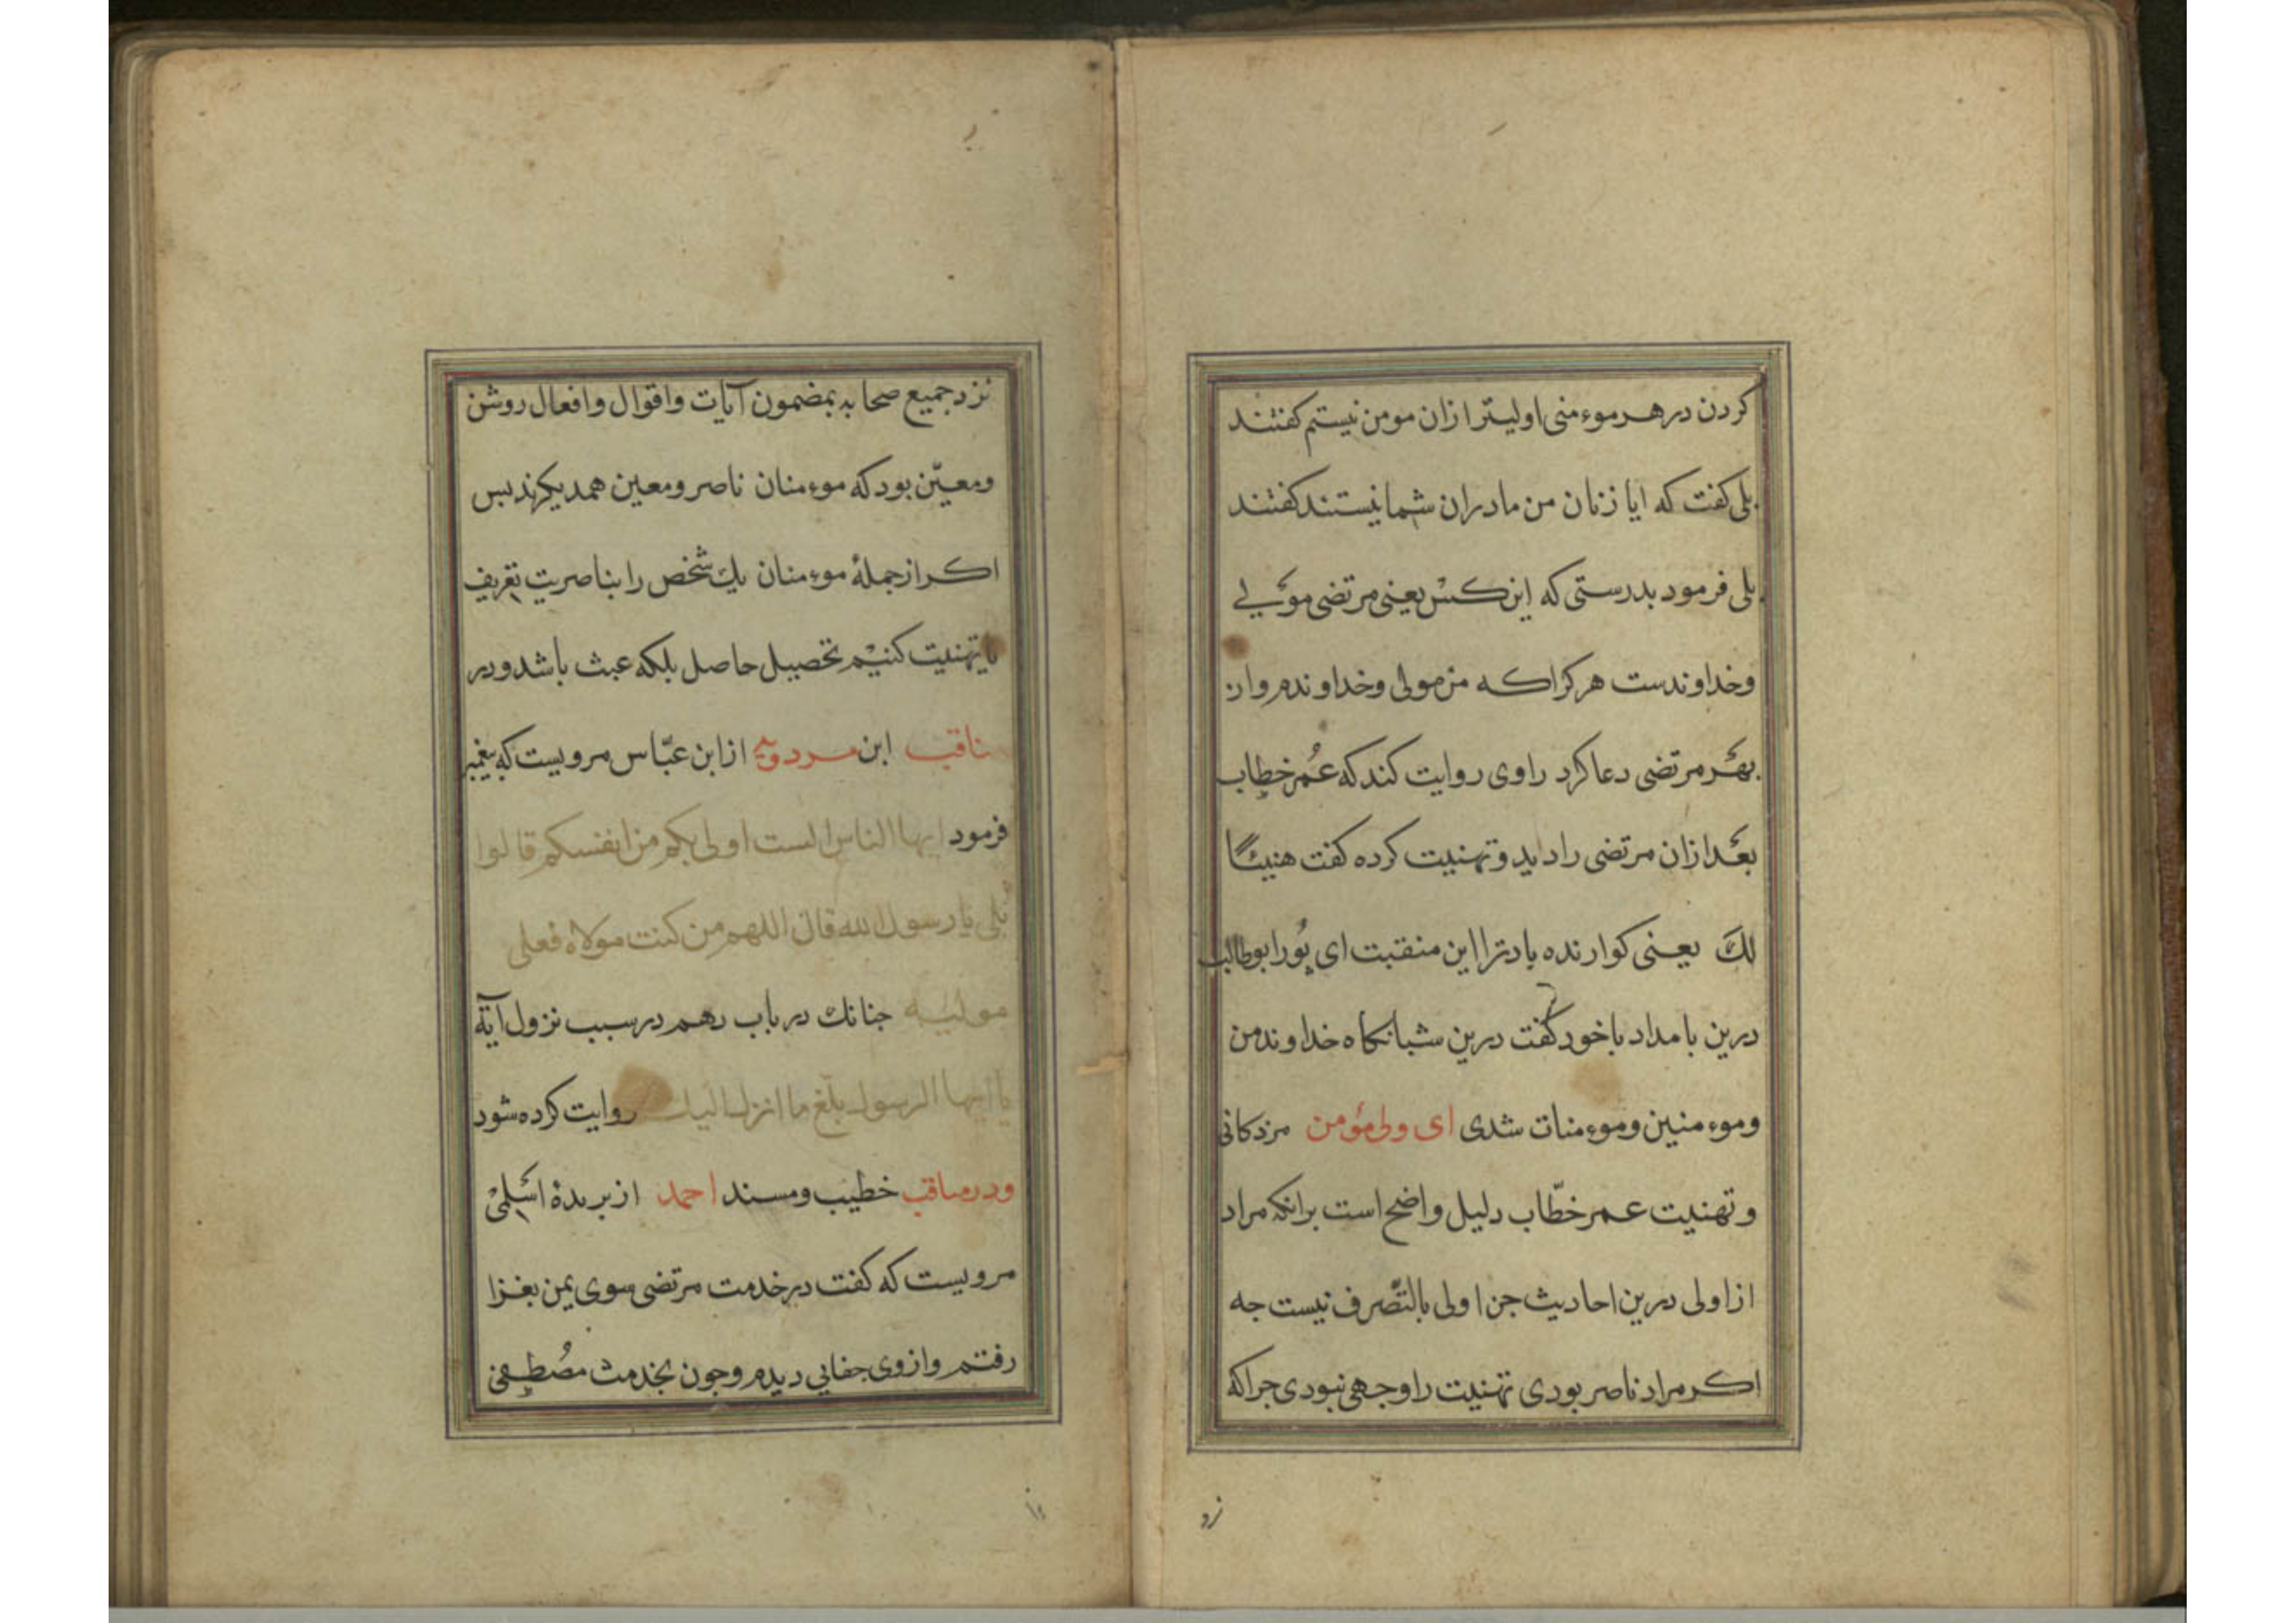 کردن در هر موءمنی اولیتر ازان مومن نیستم کفتند
بلی کفت که ایا زنان من مادران شما نیستند کفتند
بلی فرمود بدرستی که این کس یعنی مرتضی مولی
وخداوندست هر کرا که من مولی وخداوندم وان
بهر مرتضی دعا کرد راوی روایت کند که عُمر خطاب
بعد ازان مرتضی را دید و تهنیت کرده کفت هنیئًا
لكَ یعنی کوارنده باد ترا این منقبت ای پُور ابوطالب
درین بامداد باخود کفت درین شبانکاه خداوند من
وموءمنین وموءمنات شدی ای ولی مؤمن مزدکانی
و تهنیت عمر خطّاب دلیل واضح است برانکه مراد
از اولی درین احادیث جز اولی بالتّصرف نیست جه
اکر مراد ناصر بودی تهنیت را وجهی نبودی جرا که
نزد جمیع صحابه بمضمون آیات واقوال وافعال روشن
ومعیّن بود که موءمنان ناصر ومعین همدیکرند بس
اکر از جملهٔ موءمنان یك شخص را بناصریت تعریف
یا تهنیت کنیم تحصیل حاصل بلکه عبث باشد ودر
مناقب ابن مردویه از ابن عبّاس مرویست که پیغمبر
فرمود ایها الناس الست اولی بکم من انفسکم قالوا
بلی یا رسول الله قال اللهم من کنت مولاه فعلی
مولیه جنانك در باب رهم در سبب نزول آیة
یا ایها الرسول بلغ ما انزل الیك روایت کرده شود
ودر مناقب خطیب ومسند احمد از بریدهٔ اسلمی
مرویست که کفت در خدمت مرتضی سوی یمن بغزا
رفتم وازوی جفایی دیدم وجون بخدمت مصُطفی